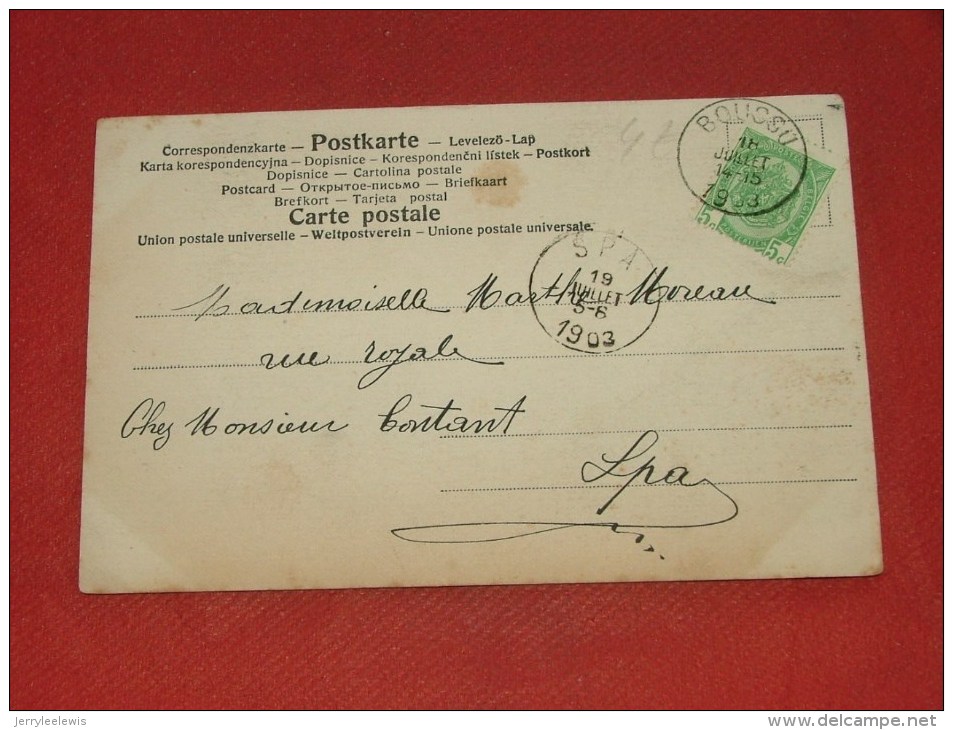 Correspondenzkarte — Postkarte — Levelező-Lap
Karta korespondencyjna — Dopisnice — Korespondenční lístek — Postkort
Dopisnice — Cartolina postale
Postcard — Открытое-письмо — Briefkaart
Brefkort — Tarjeta postal
Carte postale
Union postale universelle — Weltpostverein — Unione postale universale.
BOUSSU
18
JUILLET
14-15
1903
5c
5c
SPA
19
JUILLET
5-6
1903
Mademoiselle Marthe Moreau
rue royale
Chez Monsieur Contant
Spa
jerryleelewis
www.delcampe.net